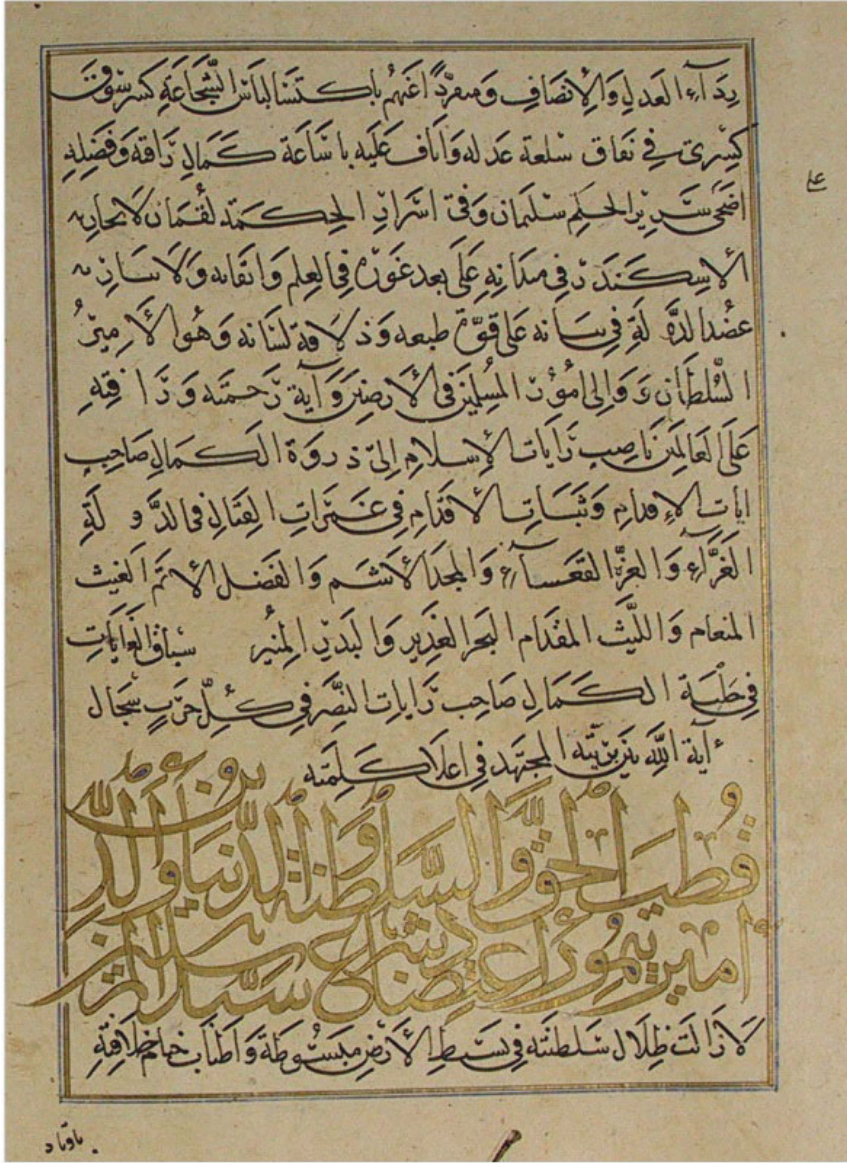 رداء العدل والإنصاف ومتفرداً اغنهم باكتسا لباس الشجاعة كسر سوق
كسرى في نفاق سلعة عدله واناف عليه باشاعة كمال رافته وفضله
اضحى سرير الحكم سليمان وفي اسرار الحكمة لقمان لا يحاريه
الاسكندر في ميدانه على بعد غوره في العلم واتقانه ولا
عضد الدولة في بيانه على قوة طبعه وذلاقة لسانه وهو الأمير
السلطان ووالي أمور المسلمين في الأرضين وآية رحمته ورافته
على العالمين ناصب رايات الإسلام إلى ذروة الكمال صاحب
ايات الإقدام وثبات الأقدام في غمرات القتال في الدولة
الغراء والعزة القعساء والمجد الأشم والفضل الأتم الغيث
المنعام والليث المقدام البحر الغزير والبدر المنير سباق الغايات
في حلبة الكمال صاحب رايات النصر في كل حرب سجال
آية الله بين بريته المجتهد في اعلا كلمته
قطب الحق والسلطنة والدنيا والدين
امير تيمور سيد المرسلين
لا زالت ظلال سلطنته في بسيط الأرض مبسوطة واطناب خيام خلافته
باوتاد